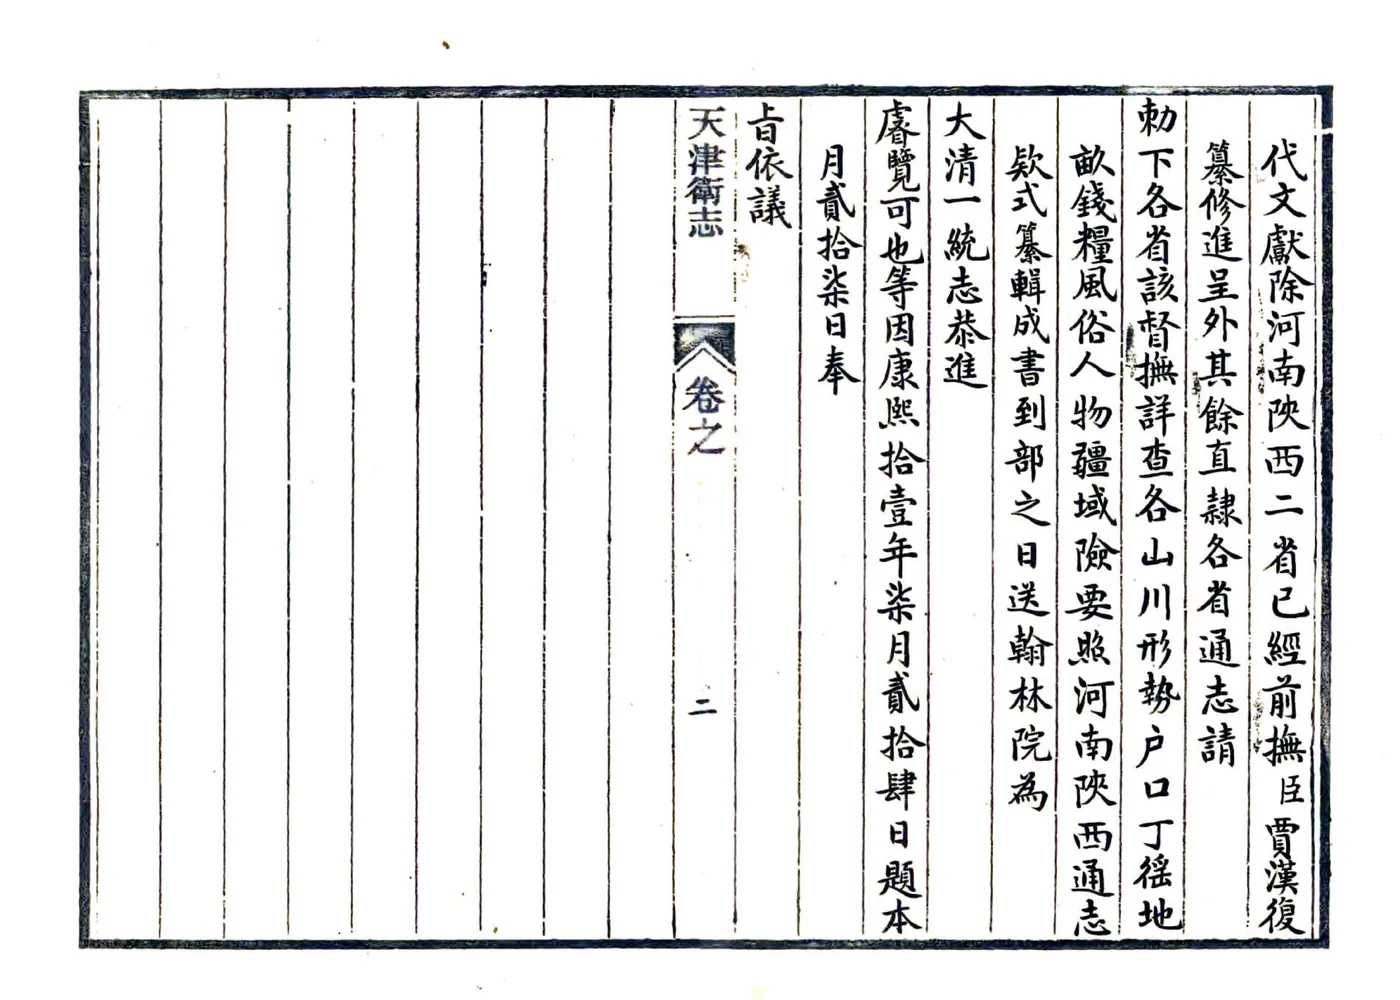 代文獻除河南陝西二省已經前撫臣賈漢復
纂修進呈外其餘直隷各省通志請
勅下各省該督撫詳查各山川形勢户口丁徭地
畝錢糧風俗人物疆域險要照河南陝西通志
欵式纂輯成書到部之日送翰林院為
大清一統志恭進
睿覽可也等因康熙拾壹年柒月貳拾肆日題本
月貳拾柒日奉
㫖依議
天津衛志 卷之 二